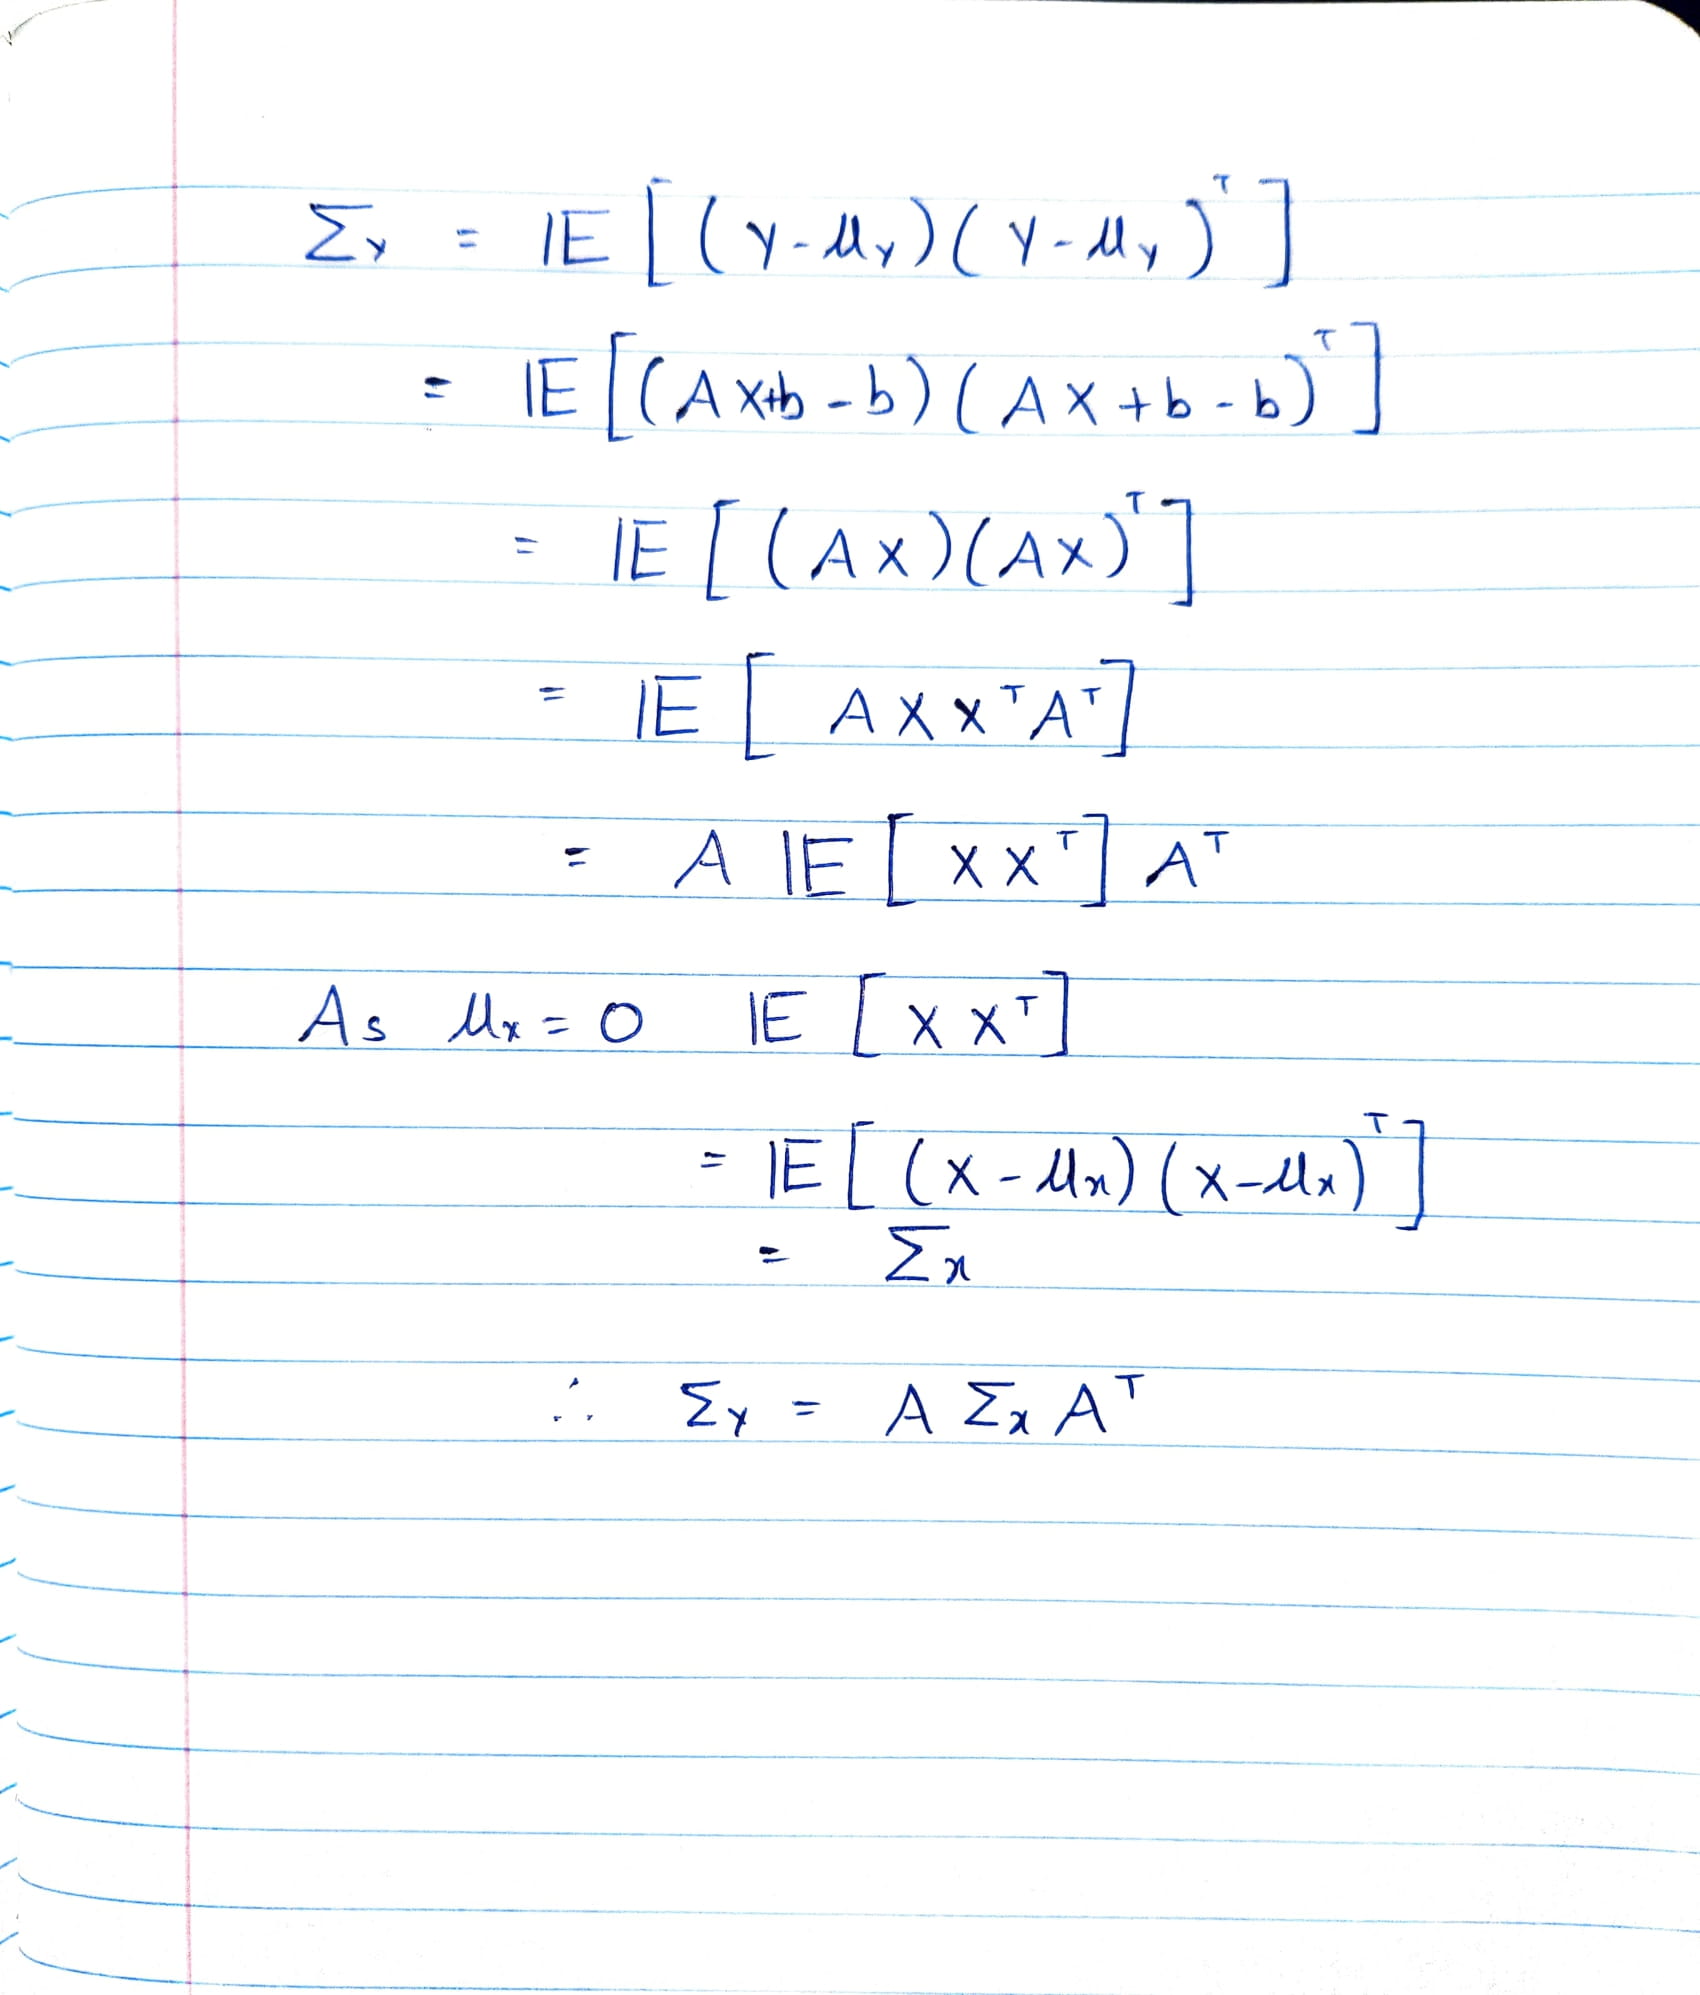 Σ_Y = 𝔼 [ (Y - μ_Y) ( Y - μ_Y )^T ]
= 𝔼 [ (A X+b - b) ( A X + b - b )^T ]
= 𝔼 [ ( A X ) ( A X )^T ]
= 𝔼 [ A X X^T A^T ]
= A 𝔼 [ X X^T ] A^T
As μ_x = 0 𝔼 [ X X^T ]
= 𝔼 [ ( X - μ_x ) ( X - μ_x )^T ]
= Σ_x
∴ Σ_Y = A Σ_x A^T